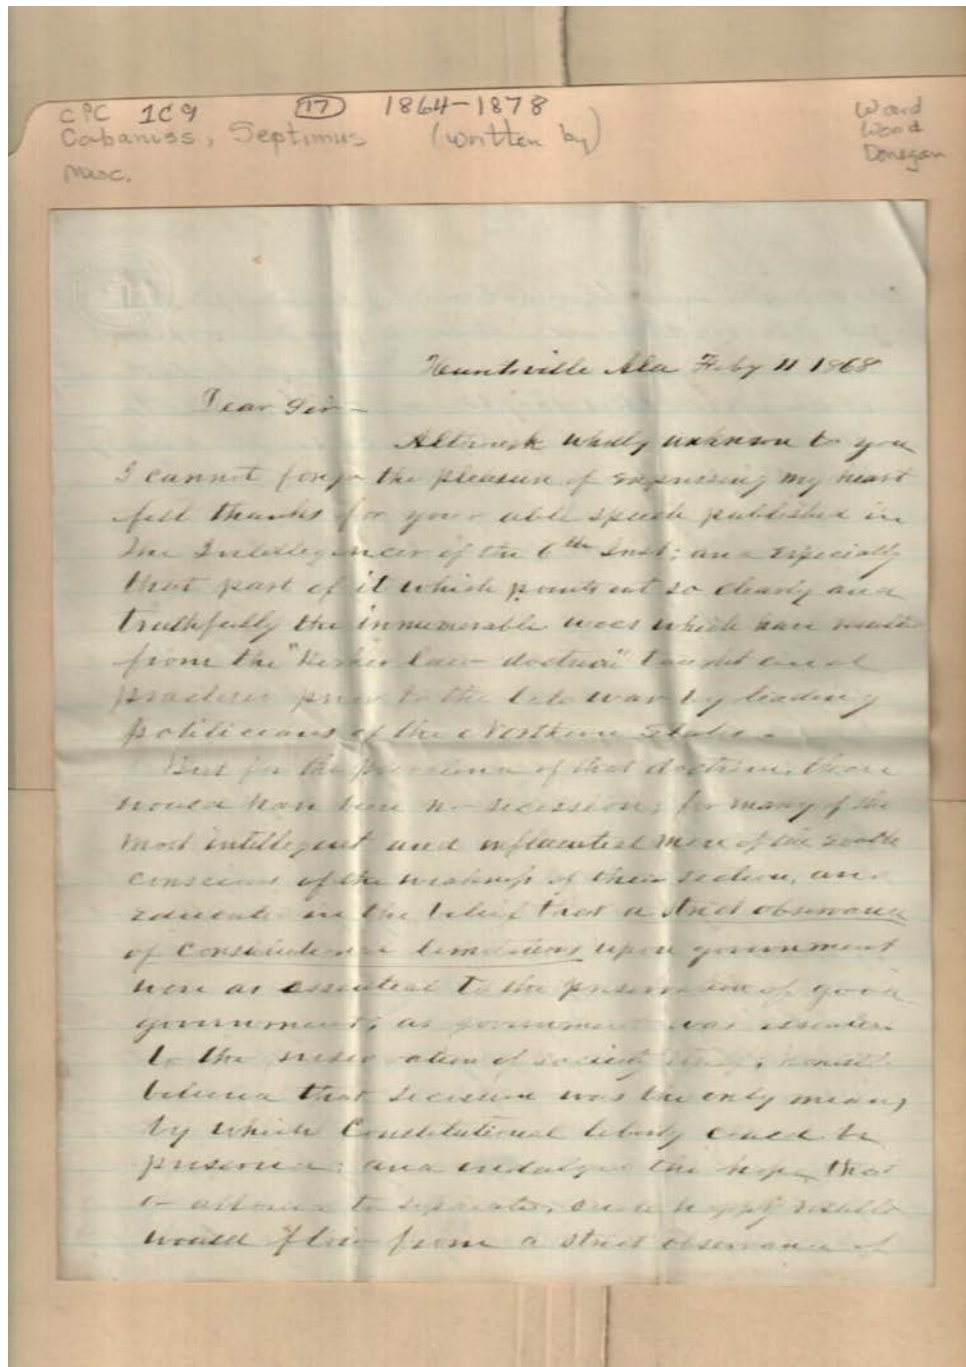 CPC 1C9 17 1864-1878
Cabaniss, Septimus (written by)
Misc.
Ward
Wood
Donegan
Huntsville Ala Feby 11 1868
Dear Sir-
Although wholly unknown to you
I cannot forgo the pleasure of expressing my heart
felt thanks for your able speech published in
The Intelligencer of the 6th Inst; and especially
that part of it which points out so clearly and
truthfully the innumerable woes which have resulted
from the "Higher law-doctrine" taught and
practiced prior to the late war by leading
politicians of the Northern States.
But for the prevalence of that doctrine, there
would have been no secession; for many of the
most intelligent and influential men of the South
conscious of the weakness of their section, and
educated in the belief that a strict observance
of Constitutional limitations upon government
were as essential to the preservation of good
government, as government was essential
to the preservation of society itself,
believed that secession was the only means
by which Constitutional liberty could be
preserved; and indulged the hope, that
allowed to separate, happy results
would flow from a strict observance of